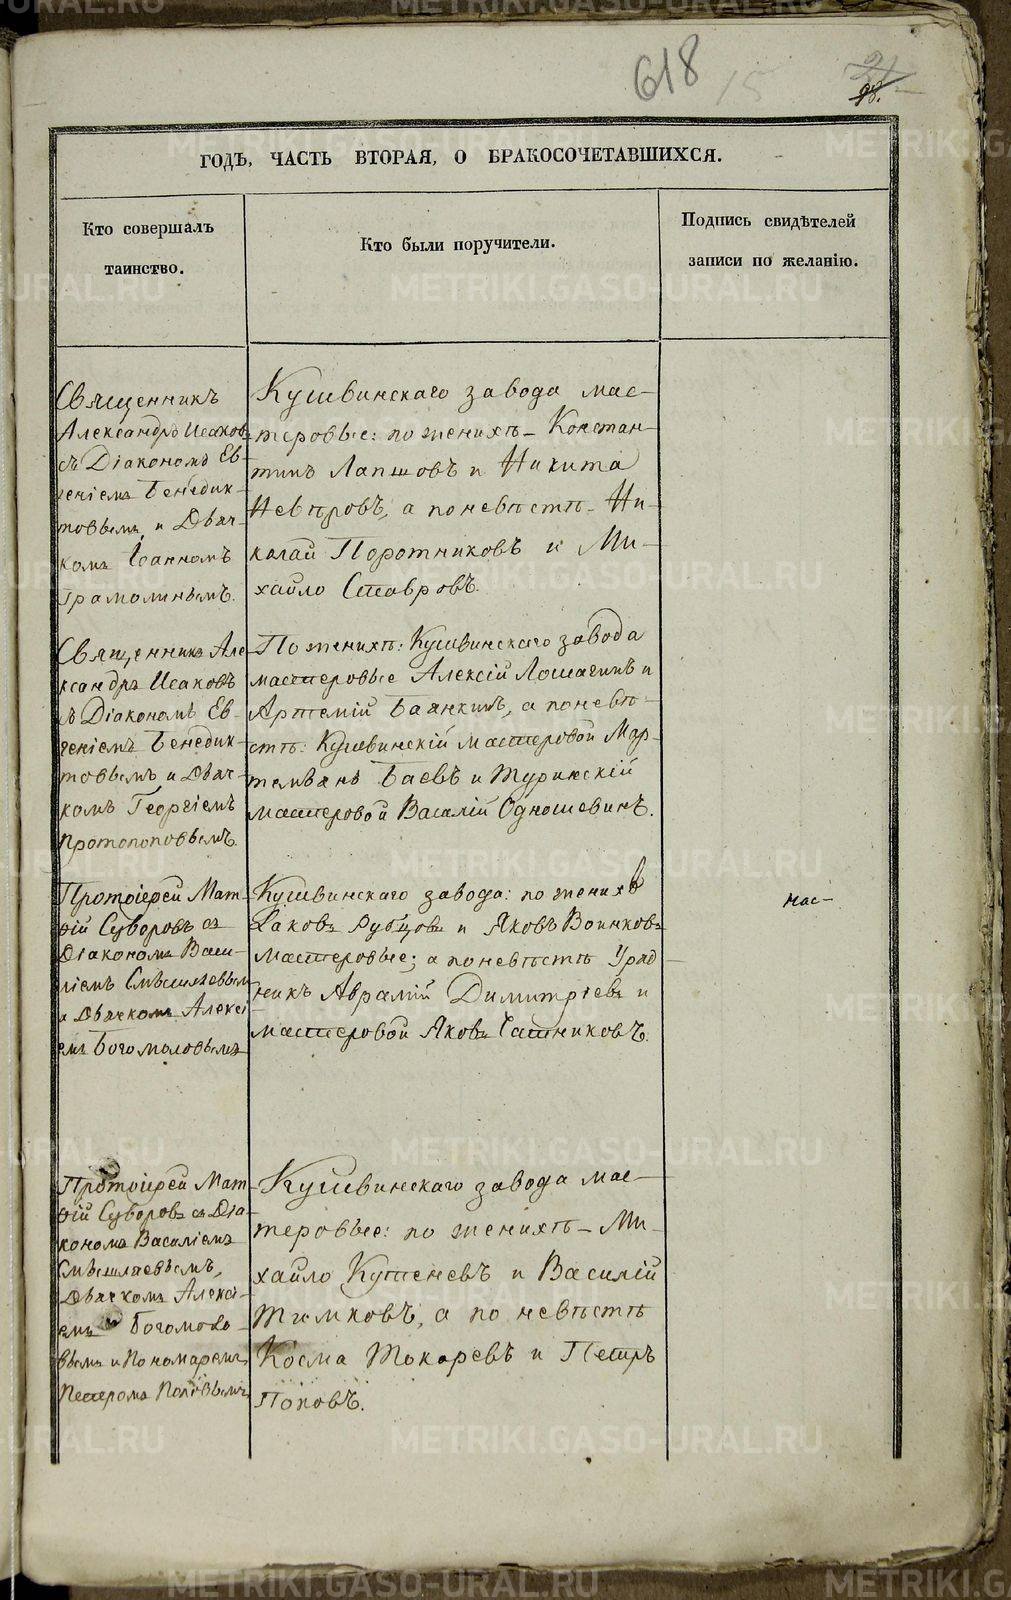 618
15
98.
ГОДЪ, ЧАСТЬ ВТОРАЯ, О БРАКОСОЧЕТАВШИХСЯ.
Кто совершалъ
таинство.
Кто были поручители.
Подпись свидѣтелей
записи по желанію.
Священникъ
Александръ Исаков
съ Діакономъ Ев-
геніемъ Бенедик-
товымъ, и Дьяч-
комъ Іоанномъ
Грамолинымъ.
Кушвинскаго завода мас-
теровые: по женихѣ - Констан-
тинъ Лапшовъ и Никита
Невѣровъ, а по невѣстѣ - Ни-
колай Поротниковъ и Ми-
хайло Ставровъ.
Священникъ Але-
ксандръ Исаковъ
съ Діакономъ Ев-
геніемъ Бенедик-
товымъ и Дьяч-
комъ Георгіемъ
Протопоповымъ.
По женихѣ: Кушвинскаго завода
мастеровые Алексій Лошагинъ и
Артемій Баянкинъ, а по невѣ-
стѣ: Кушвинскій мастеровой Мар-
темьянъ Баевъ и Туринскій
мастеровой Василій Одношевинъ.
Протоіерей Мат-
ѳій Суворовъ съ
Діакономъ Васи-
ліемъ Смышляевым
и Дьячкомъ Алексі
емъ Богомоловымъ
Кушвинскаго завода: по женихѣ
Іаковъ Рубцовъ и Яковъ Воинковъ
мастеровые; а по невѣстѣ Уряд-
никъ Аврамій Димитріевъ и
мастеровой Яковъ Чашниковъ.
мас-
Протоіерей Мат-
ѳій Суворовъ съ Діа-
кономъ Василіемъ
Смышляевымъ,
Дьячкомъ Алексі-
емъ Богомоло-
вымъ и Пономаремъ
Петромъ Поповымъ
Кушвинскаго завода мас-
теровые: по женихѣ - Ми-
хайло Кутеневъ и Василій
Тимковъ, а по невѣстѣ
Косма Токаревъ и Петръ
Поповъ.
METRIKI.GASO-URAL.RU